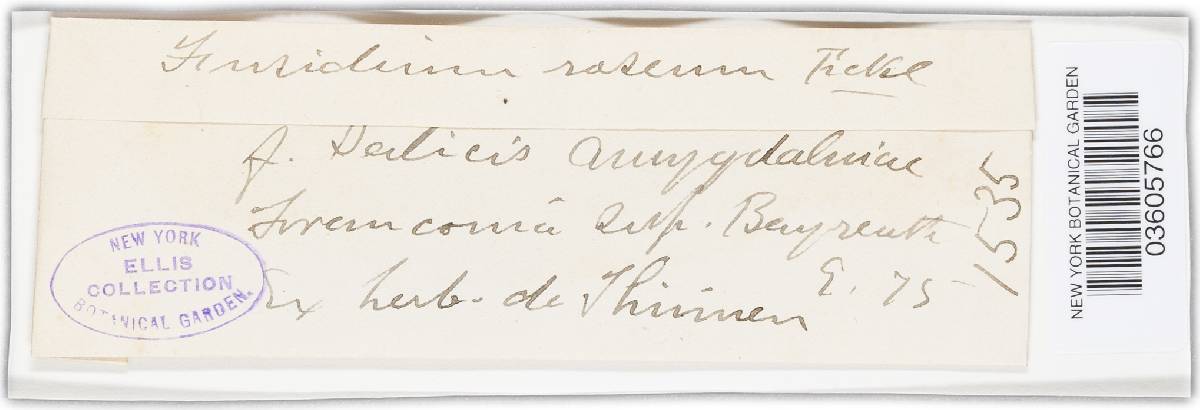 Fusidium roseum Fckl
f. Salicis amygdalinae
Franconia sup. Bayreuth
Ex herb. de Thümen E. 75
1535
NEW YORK
ELLIS
COLLECTION
BOTANICAL GARDEN.
NEW YORK BOTANICAL GARDEN
03605766